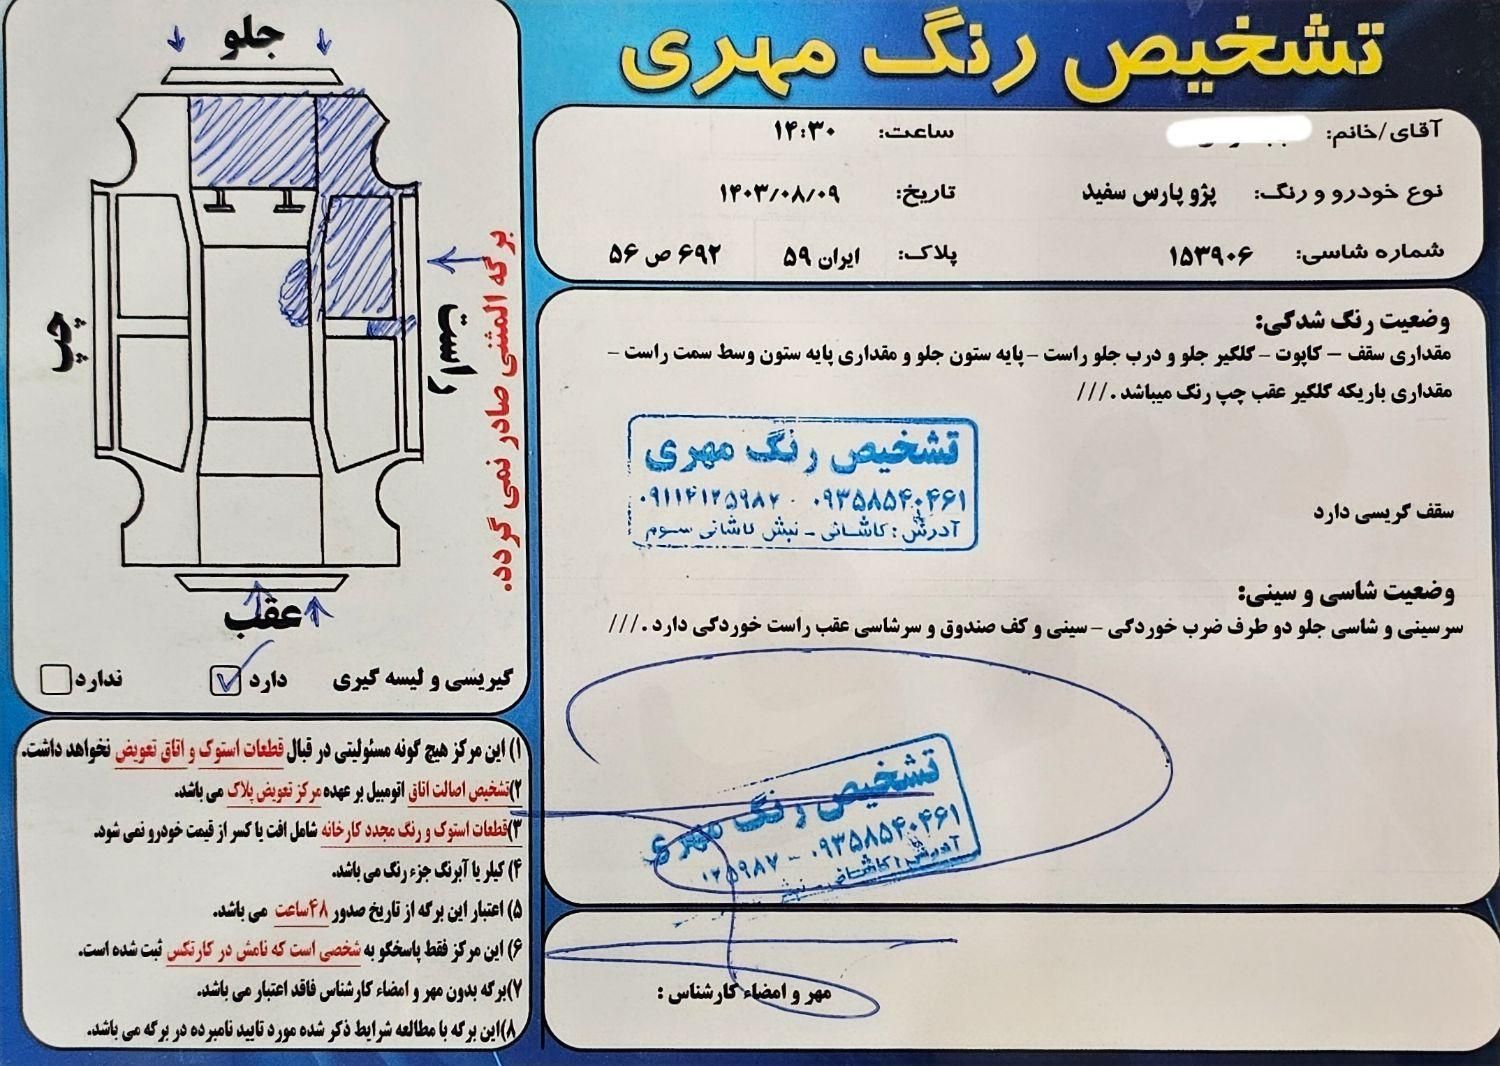 تشخیص رنگ مهری
آقای/خانم:
ساعت: ۱۴:۳۰
نوع خودرو و رنگ: پژو پارس سفید
تاریخ: ۱۴۰۳/۰۸/۰۹
شماره شاسی: ۱۵۳۹۰۶
پلاک: ایران ۵۹ ۶۹۲ ص ۵۶
وضعیت رنگ شدگی:
مقداری سقف – کاپوت – گلگیر جلو و درب جلو راست – پایه ستون جلو و مقداری پایه ستون وسط سمت راست –
مقداری باریکه گلگیر عقب چپ رنگ میباشد . ///
تشخیص رنگ مهری
۰۹۳۵۸۵۴۰۴۶۱ - ۰۹۱۱۴۱۲۵۹۸۷
آدرش : کاشانی - نبش کاشانی سوم
سقف گریسی دارد
وضعیت شاسی و سینی:
سرسینی و شاسی جلو دو طرف ضرب خوردگی – سینی و کف صندوق و سرشاسی عقب راست خوردگی دارد . ///
تشخیص رنگ مهری
۰۹۳۵۸۵۴۰۴۶۱ - ۱۲۵۹۸۷
آدرش : کاشانی - نبش
مهر و امضاء کارشناس :
جلو
چپ
راست
برگه المثنی صادر نمی گردد.
عقب
گیریسی و لیسه گیری دارد ندارد
۱) این مرکز هیچ گونه مسئولیتی در قبال قطعات استوک و اتاق تعویض نخواهد داشت.
۲)تشخیص اصالت اتاق اتومبیل بر عهده مرکز تعویض پلاک می باشد.
۳)قطعات استوک و رنگ مجدد کارخانه شامل افت یا کسر از قیمت خودرو نمی شود.
۴) کیلر یا آبرنگ جزء رنگ می باشد.
۵) اعتبار این برگه از تاریخ صدور ۴۸ساعت می باشد.
۶) این مرکز فقط پاسخگو به شخصی است که نامش در کارتکس ثبت شده است.
۷)برگه بدون مهر و امضاء کارشناس فاقد اعتبار می باشد.
۸)این برگه با مطالعه شرایط ذکر شده مورد تایید نامبرده در برگه می باشد.